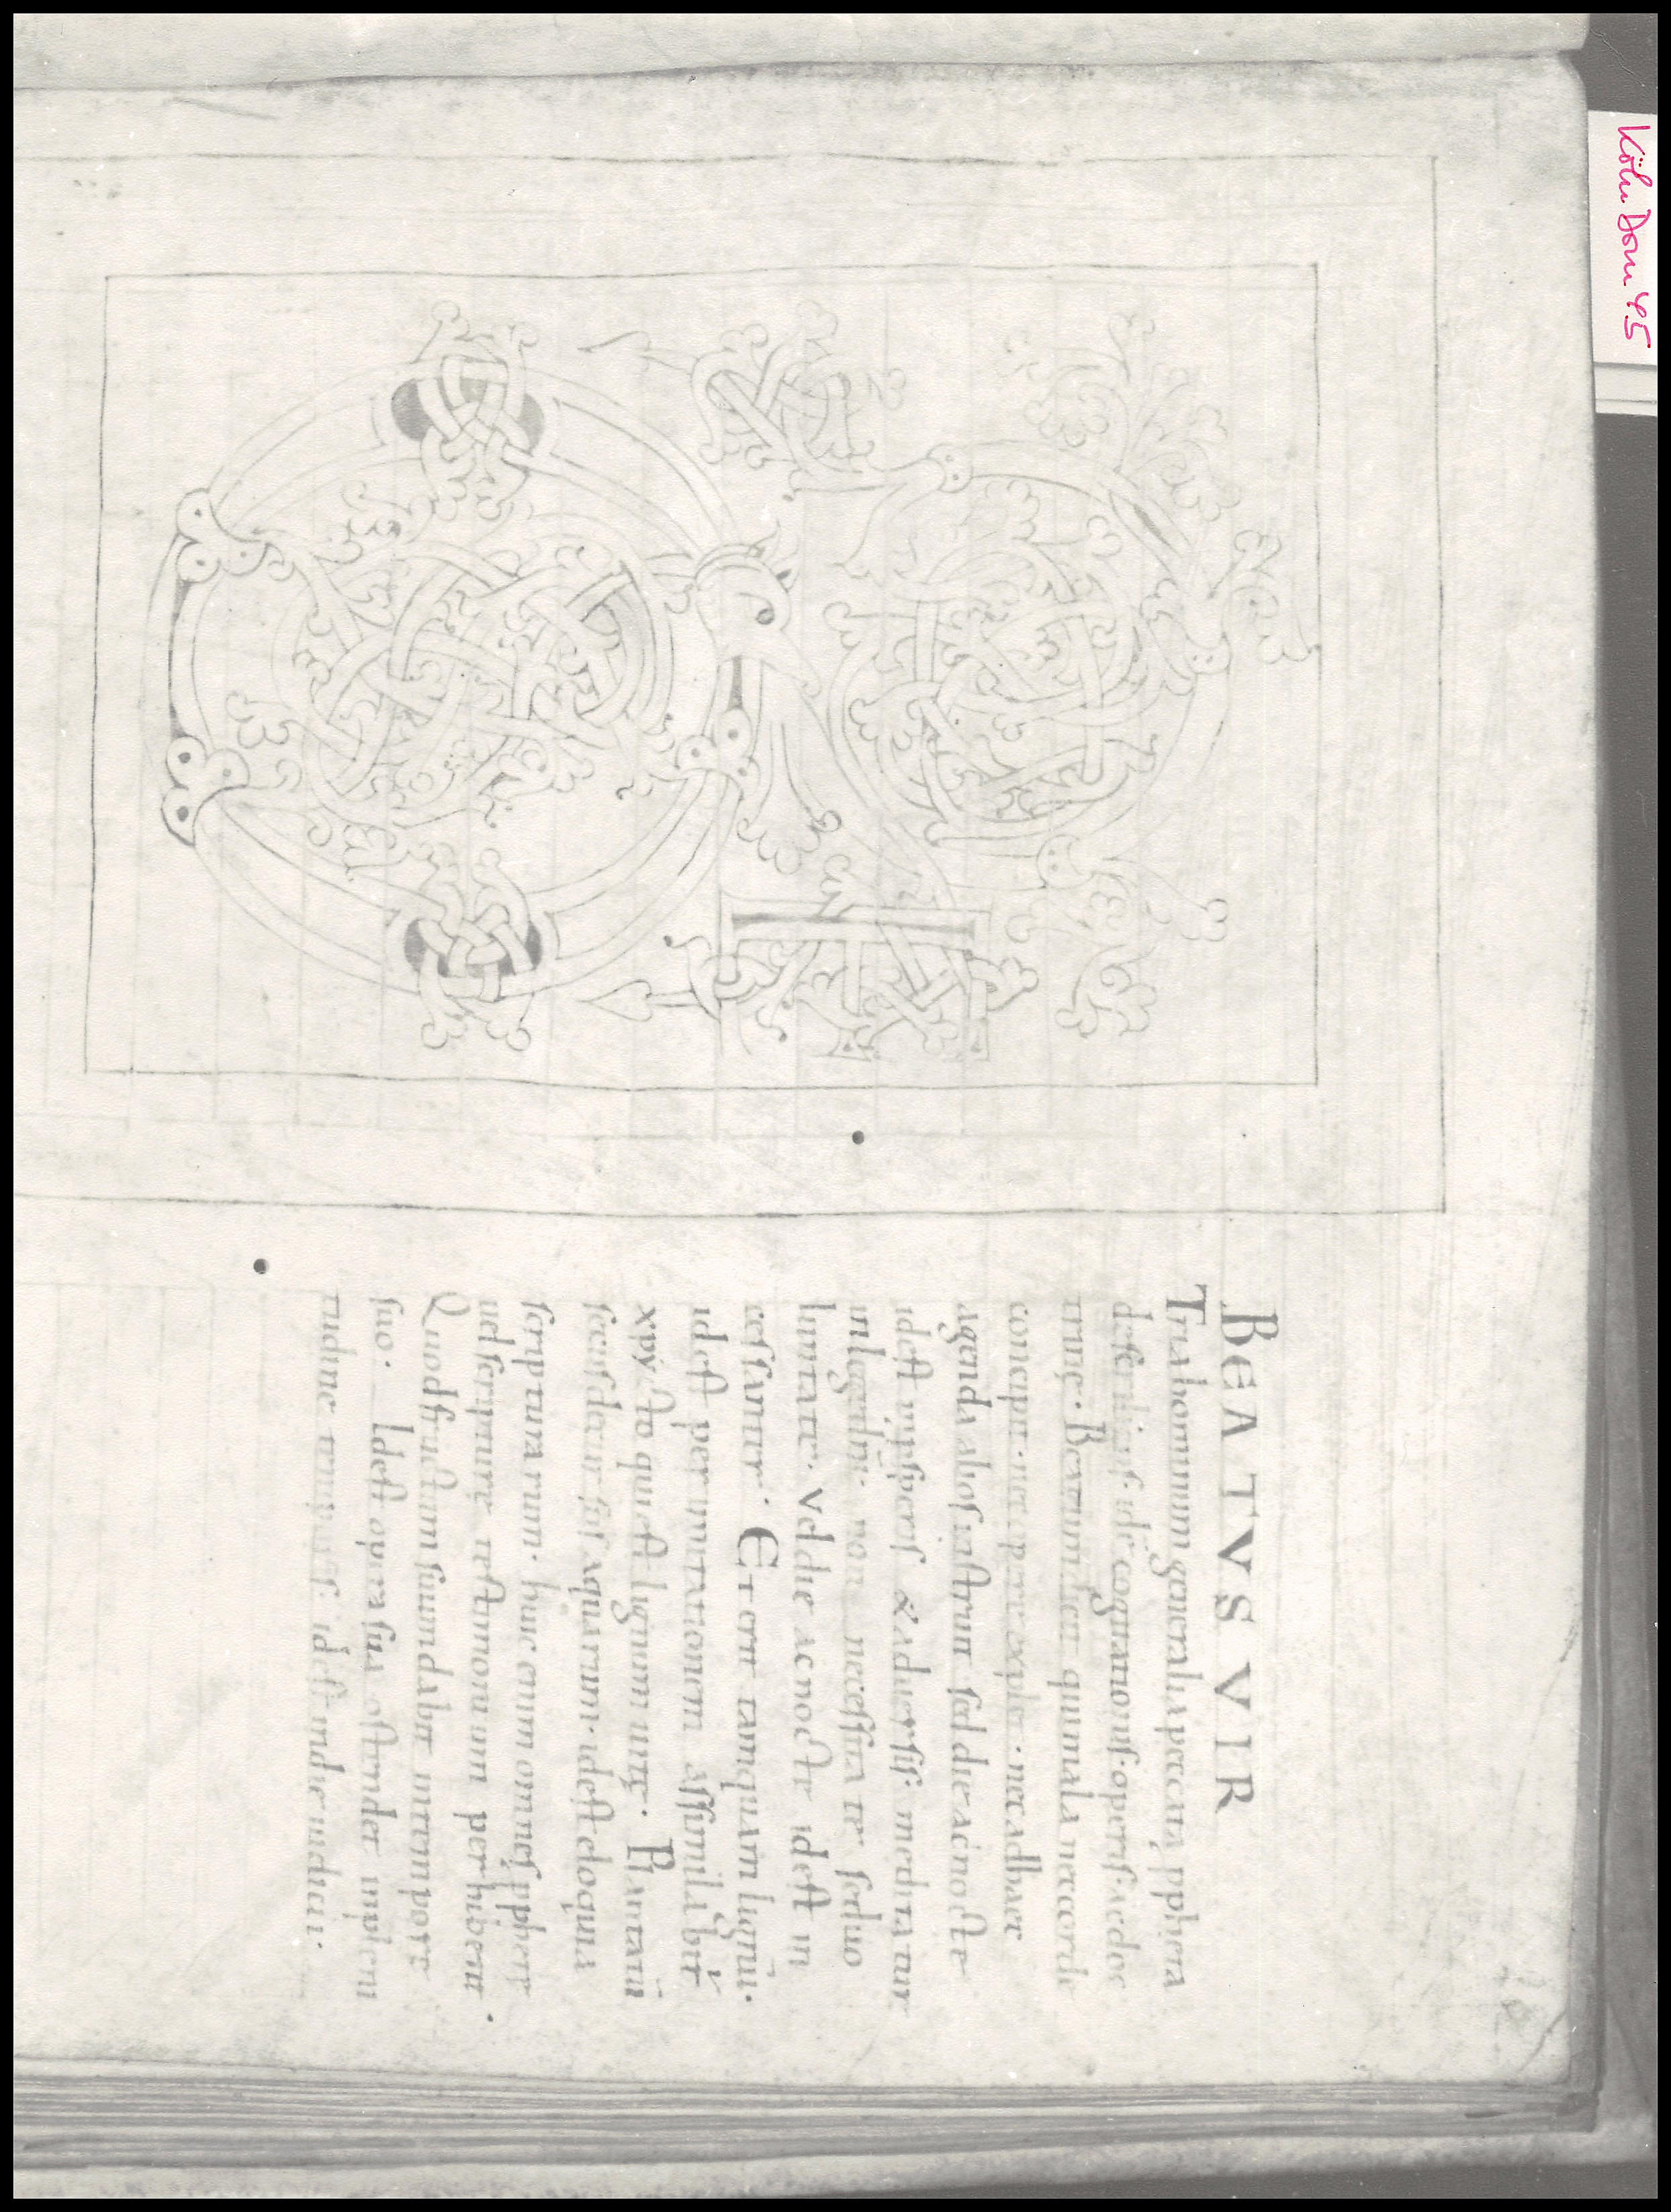 Köln Dom 45
BEATVS VIR
Tria bominum generalia peccata ppheta
tatione. Beatum dicit qui mala nec corde
concepit. nec opere explet. nec ad haec
agenda alios instruit sed die ac nocte
idest inpsperis & aduersis. meditatur
inlege dni. non necessitate sed uo
luntate. Vel die ac nocte idest in
cessanter. Et erit tamquam lignũ.
idest per imitationem assimilabit̃
xp̃o qui est lignum uitę. Plantatũ
secus decursus aquarum. idest eloquia
scripturarum. huic cum omnes pphetę
uel scripturę testimonium perhibent.
Quod fructum suum dabit intempore
suo. Idest opera sua ostendet inpleni
tudine temporis idest indie iudicii.